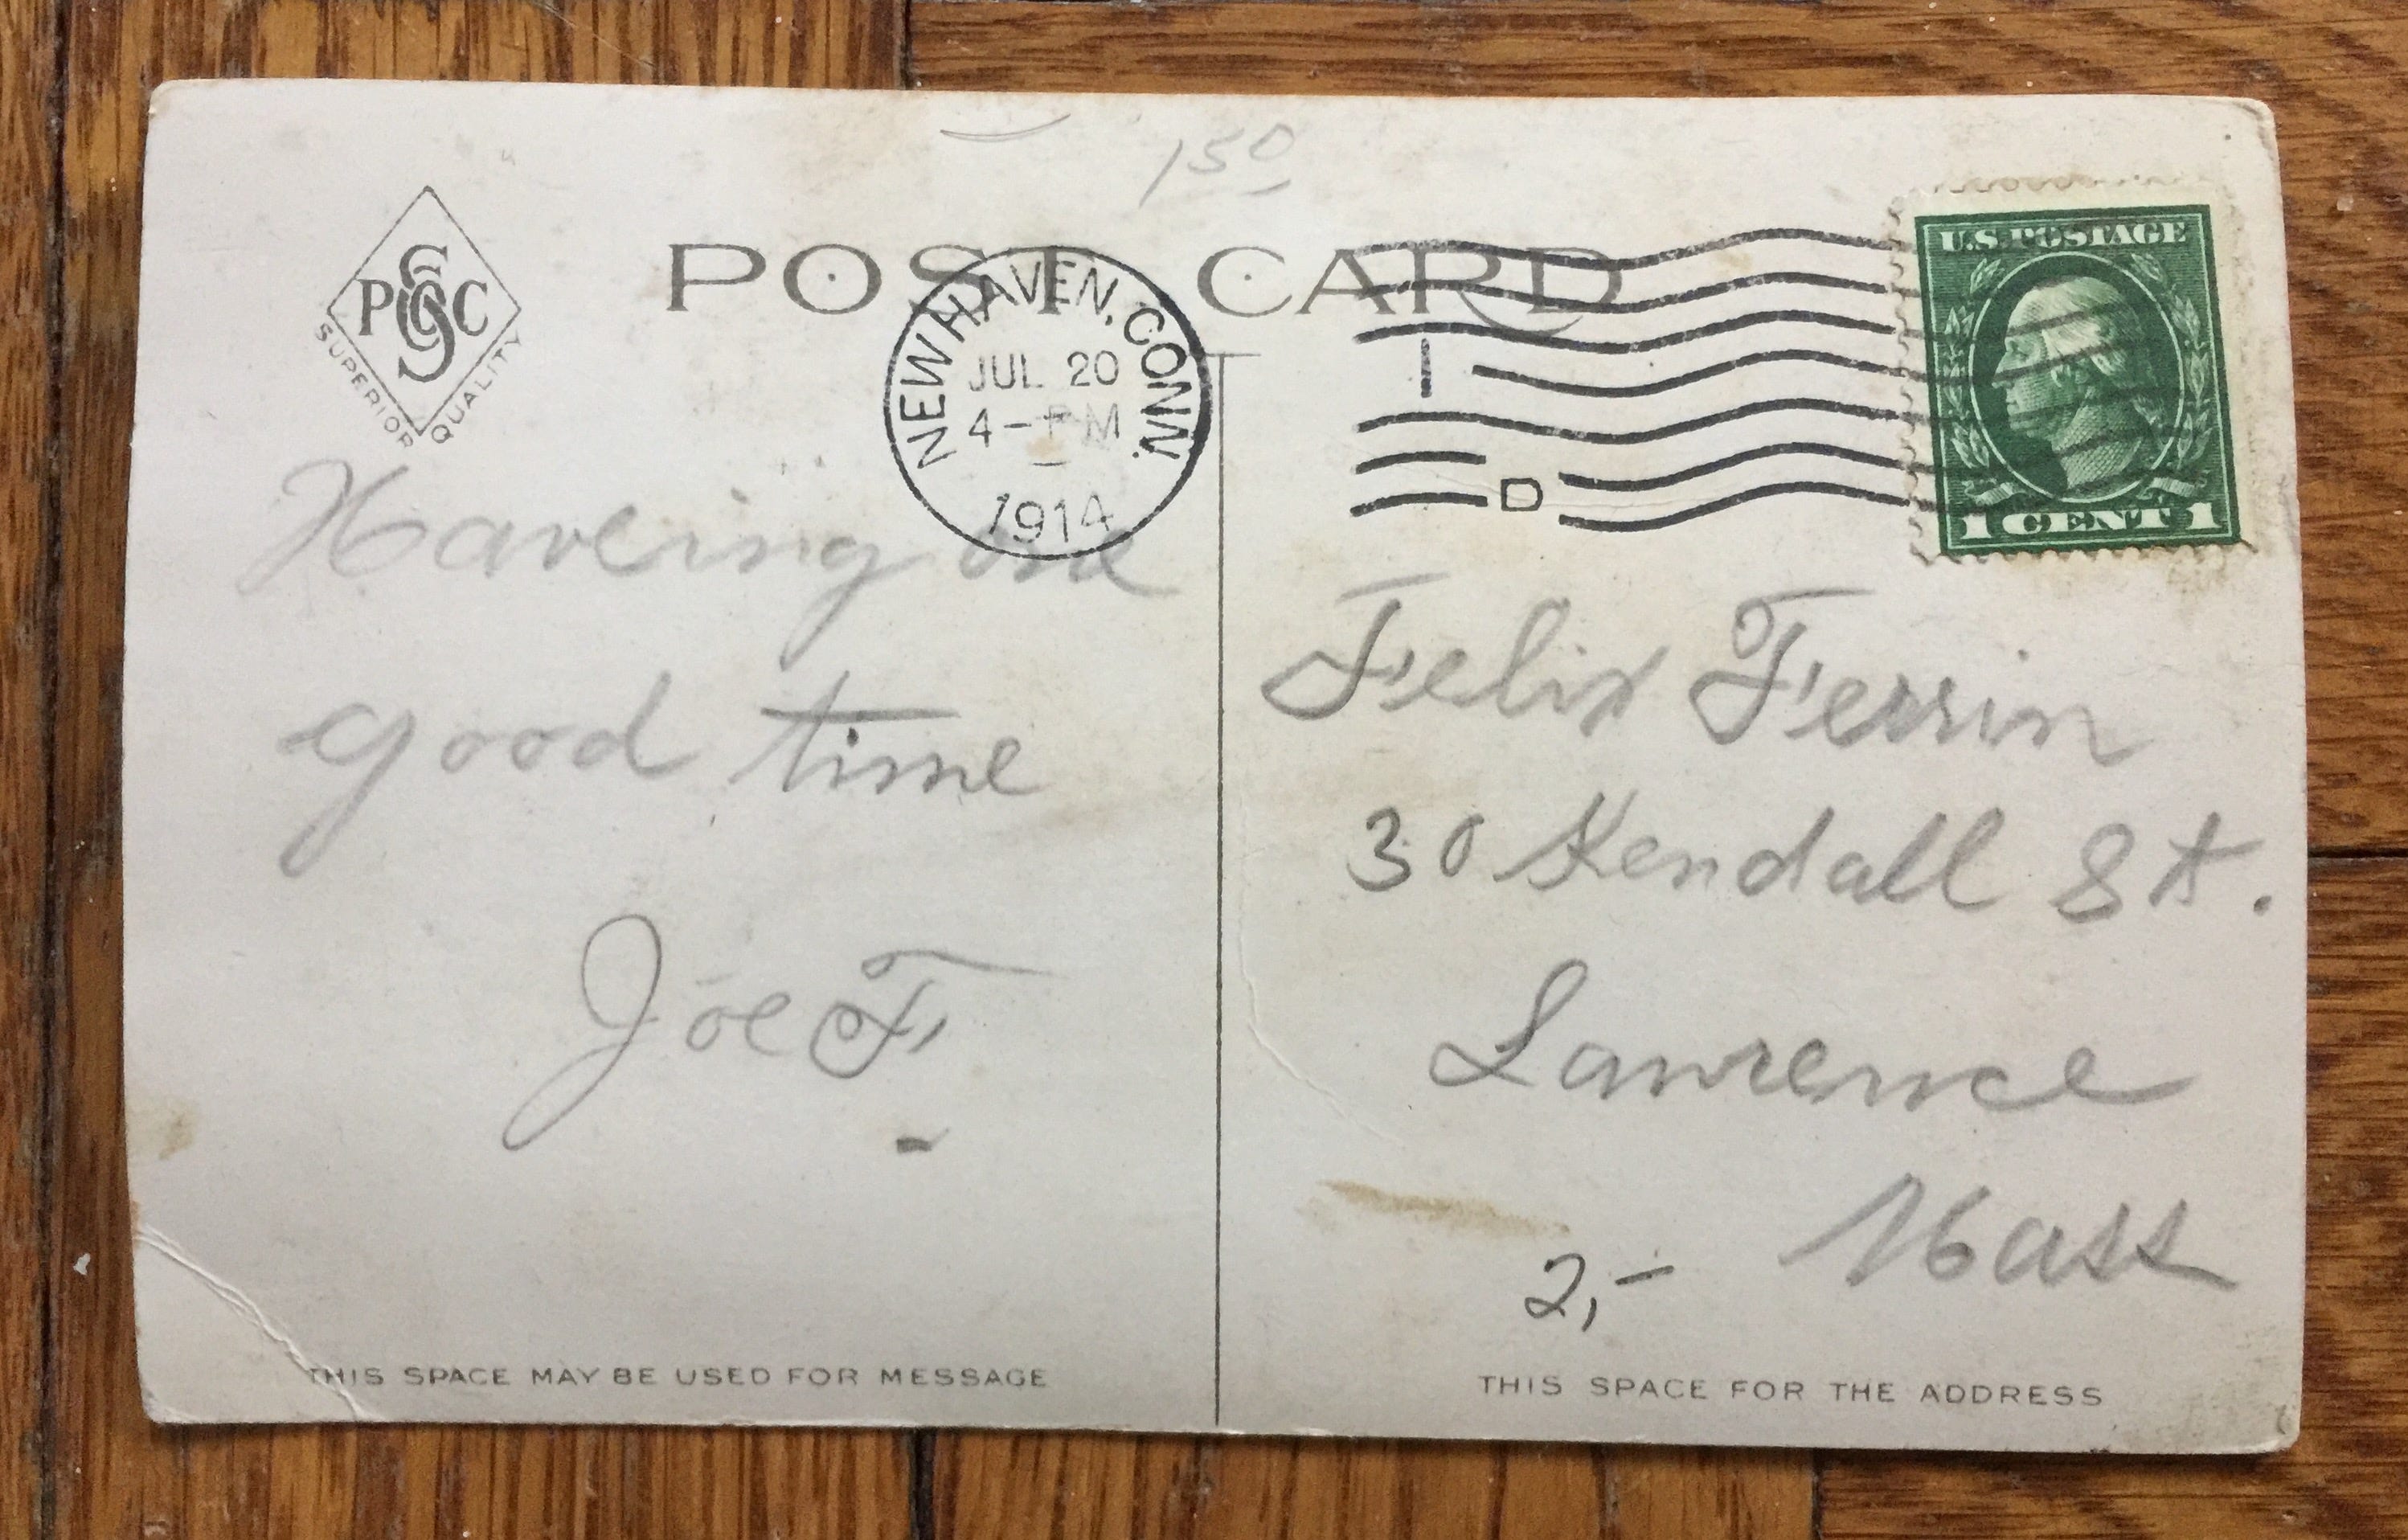 150
POST CARD
PSGC
SUPERIOR QUALITY
NEW HAVEN, CONN.
JUL 20
4-PM
1914
1
D
U.S. POSTAGE
1 CENT 1
Haveing one
good time
Joe F.
THIS SPACE MAY BE USED FOR MESSAGE
Felix Ferrin
30 Kendall St.
Lawrence
Mass
2,-
THIS SPACE FOR THE ADDRESS